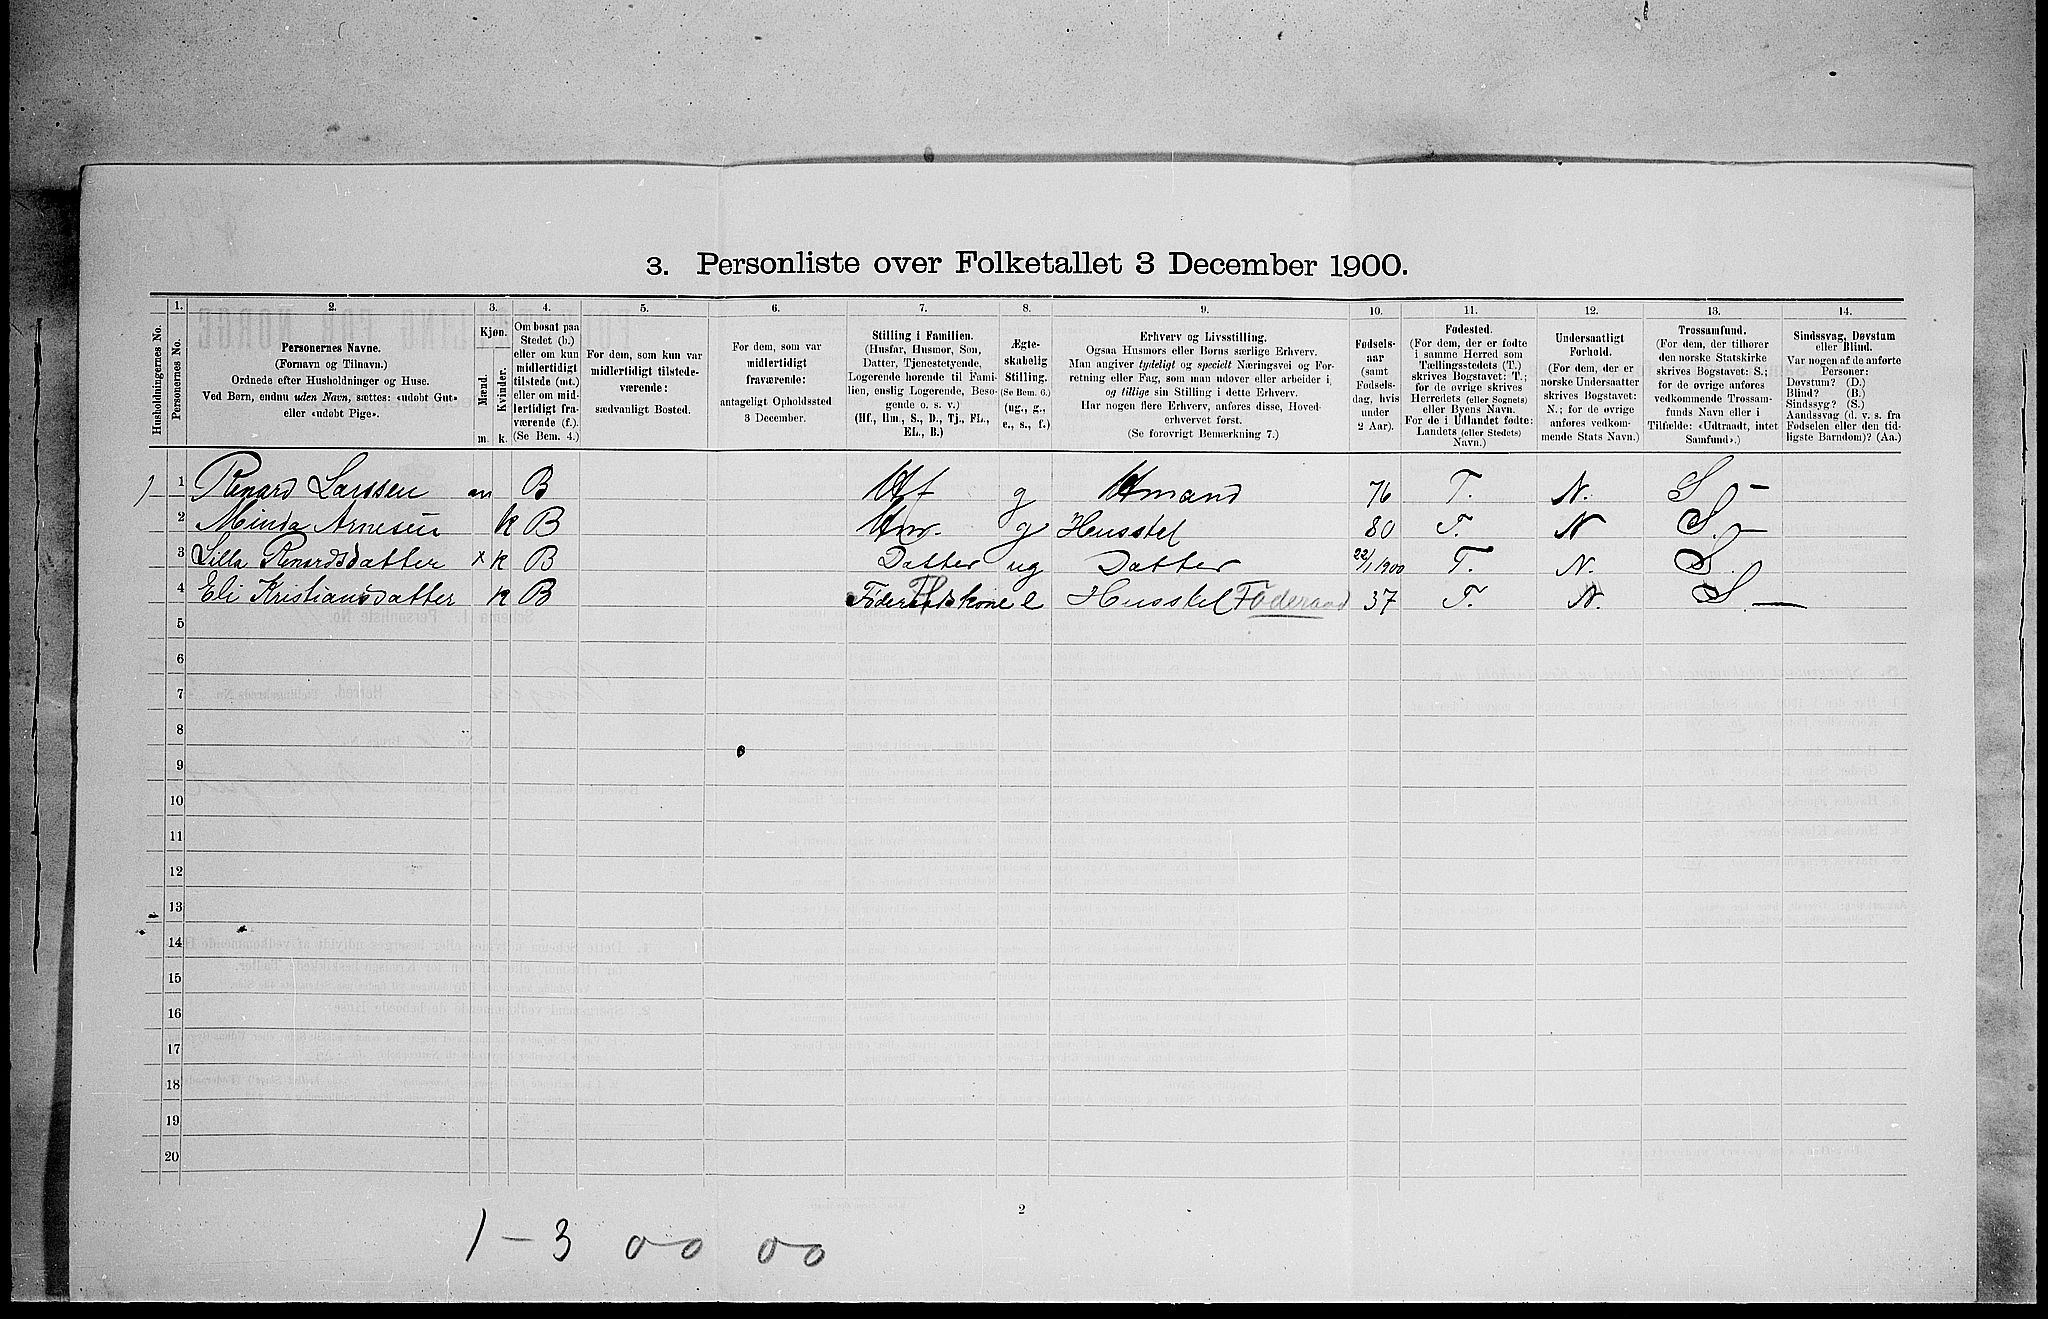 3. Personliste over Folketallet 3 December 1900.
1. 2. 3. 4. 5. 6. 7. 8. 9. 10. 11. 12. 13. 14.
Husholdningernes No.
Personernes No.
Personernes Navne.
(Fornavn og Tilnavn.)
Ordnede efter Husholdninger og Huse.
Ved Børn, endnu uden Navn, sættes: «udøbt Gut»
eller «udøbt Pige».
Kjøn.
Mænd.
Kvinder.
m. k.
Om bosat paa
Stedet (b.)
eller om kun
midlertidigt
tilstede (mt.)
eller om mid-
lertidigt fra-
værende (f.).
(Se Bem. 4.)
For dem, som kun var
midlertidigt tilstede-
værende:
sædvanligt Bosted.
For dem, som var
midlertidigt
fraværende:
antageligt Opholdssted
3 December.
Stilling i Familien.
(Husfar, Husmor, Søn,
Datter, Tjenestetyende,
Logerende hørende til Fami-
lien, enslig Logerende, Beso-
gende o. s. v.)
(Hf., Hm., S., D., Tj., FL.,
EL., B.)
Ægte-
skabelig
Stilling.
(Se Bem. 6.)
(ug., g.,
e., s., f.)
Erhverv og Livsstilling.
Ogsaa Husmors eller Børns særlige Erhverv.
Man angiver tydeligt og specielt Næringsvei og For-
retning eller Fag, som man udøver eller arbeider i,
og tillige sin Stilling i dette Erhverv.
Har nogen flere Erhverv, anføres disse, Hoved-
erhvervet først.
(Se forøvrigt Bemærkning 7.)
Fødsels-
aar
(samt
Fødsels-
dag, hvis
under
2 Aar).
Fødested.
(For dem, der er fødte
i samme Herred som
Tællingsstedets (T.)
skrives Bogstavet: T.;
for de øvrige skrives
Herredets (eller Sognets)
eller Byens Navn.
For de i Udlandet fødte:
Landets (eller Stedets)
Navn.)
Undersaatligt
Forhold.
(For dem, der er
norske Undersaatter
skrives Bogstavet:
N.; for de øvrige
anføres vedkom-
mende Stats Navn).
Trossamfund.
(For dem, der tilhører
den norske Statskirke
skrives Bogstavet: S.;
for de øvrige anføres
vedkommende Trossam-
funds Navn eller i
Tilfælde: «Udtraadt, intet
Samfund».)
Sindssvag, Døvstum
eller Blind.
Var nogen af de anførte
Personer:
Døvstum? (D.)
Blind? (B.)
Sindssyg? (S.)
Aandssvag (d. v. s. fra
Fødselen eller den tid-
ligste Barndom)? (Aa.)
1 Renard Larssen m B Hf g Hmand 76 T. N. S. -
2 Minda Arnesen k B Hm. g Husstel 80 T. N S. -
3 Lilla Renardsdatter x k B Datter ug Datter 22/1 1900 T. N. S.
4 Eli Kristiansdatter k B Føderaadskone e Husstel Føderaad 37 T. N. S. -
5
6
7
8
9
10
11
12
13
14
15
16
17
18
19
20
2
1 - 3 00 00